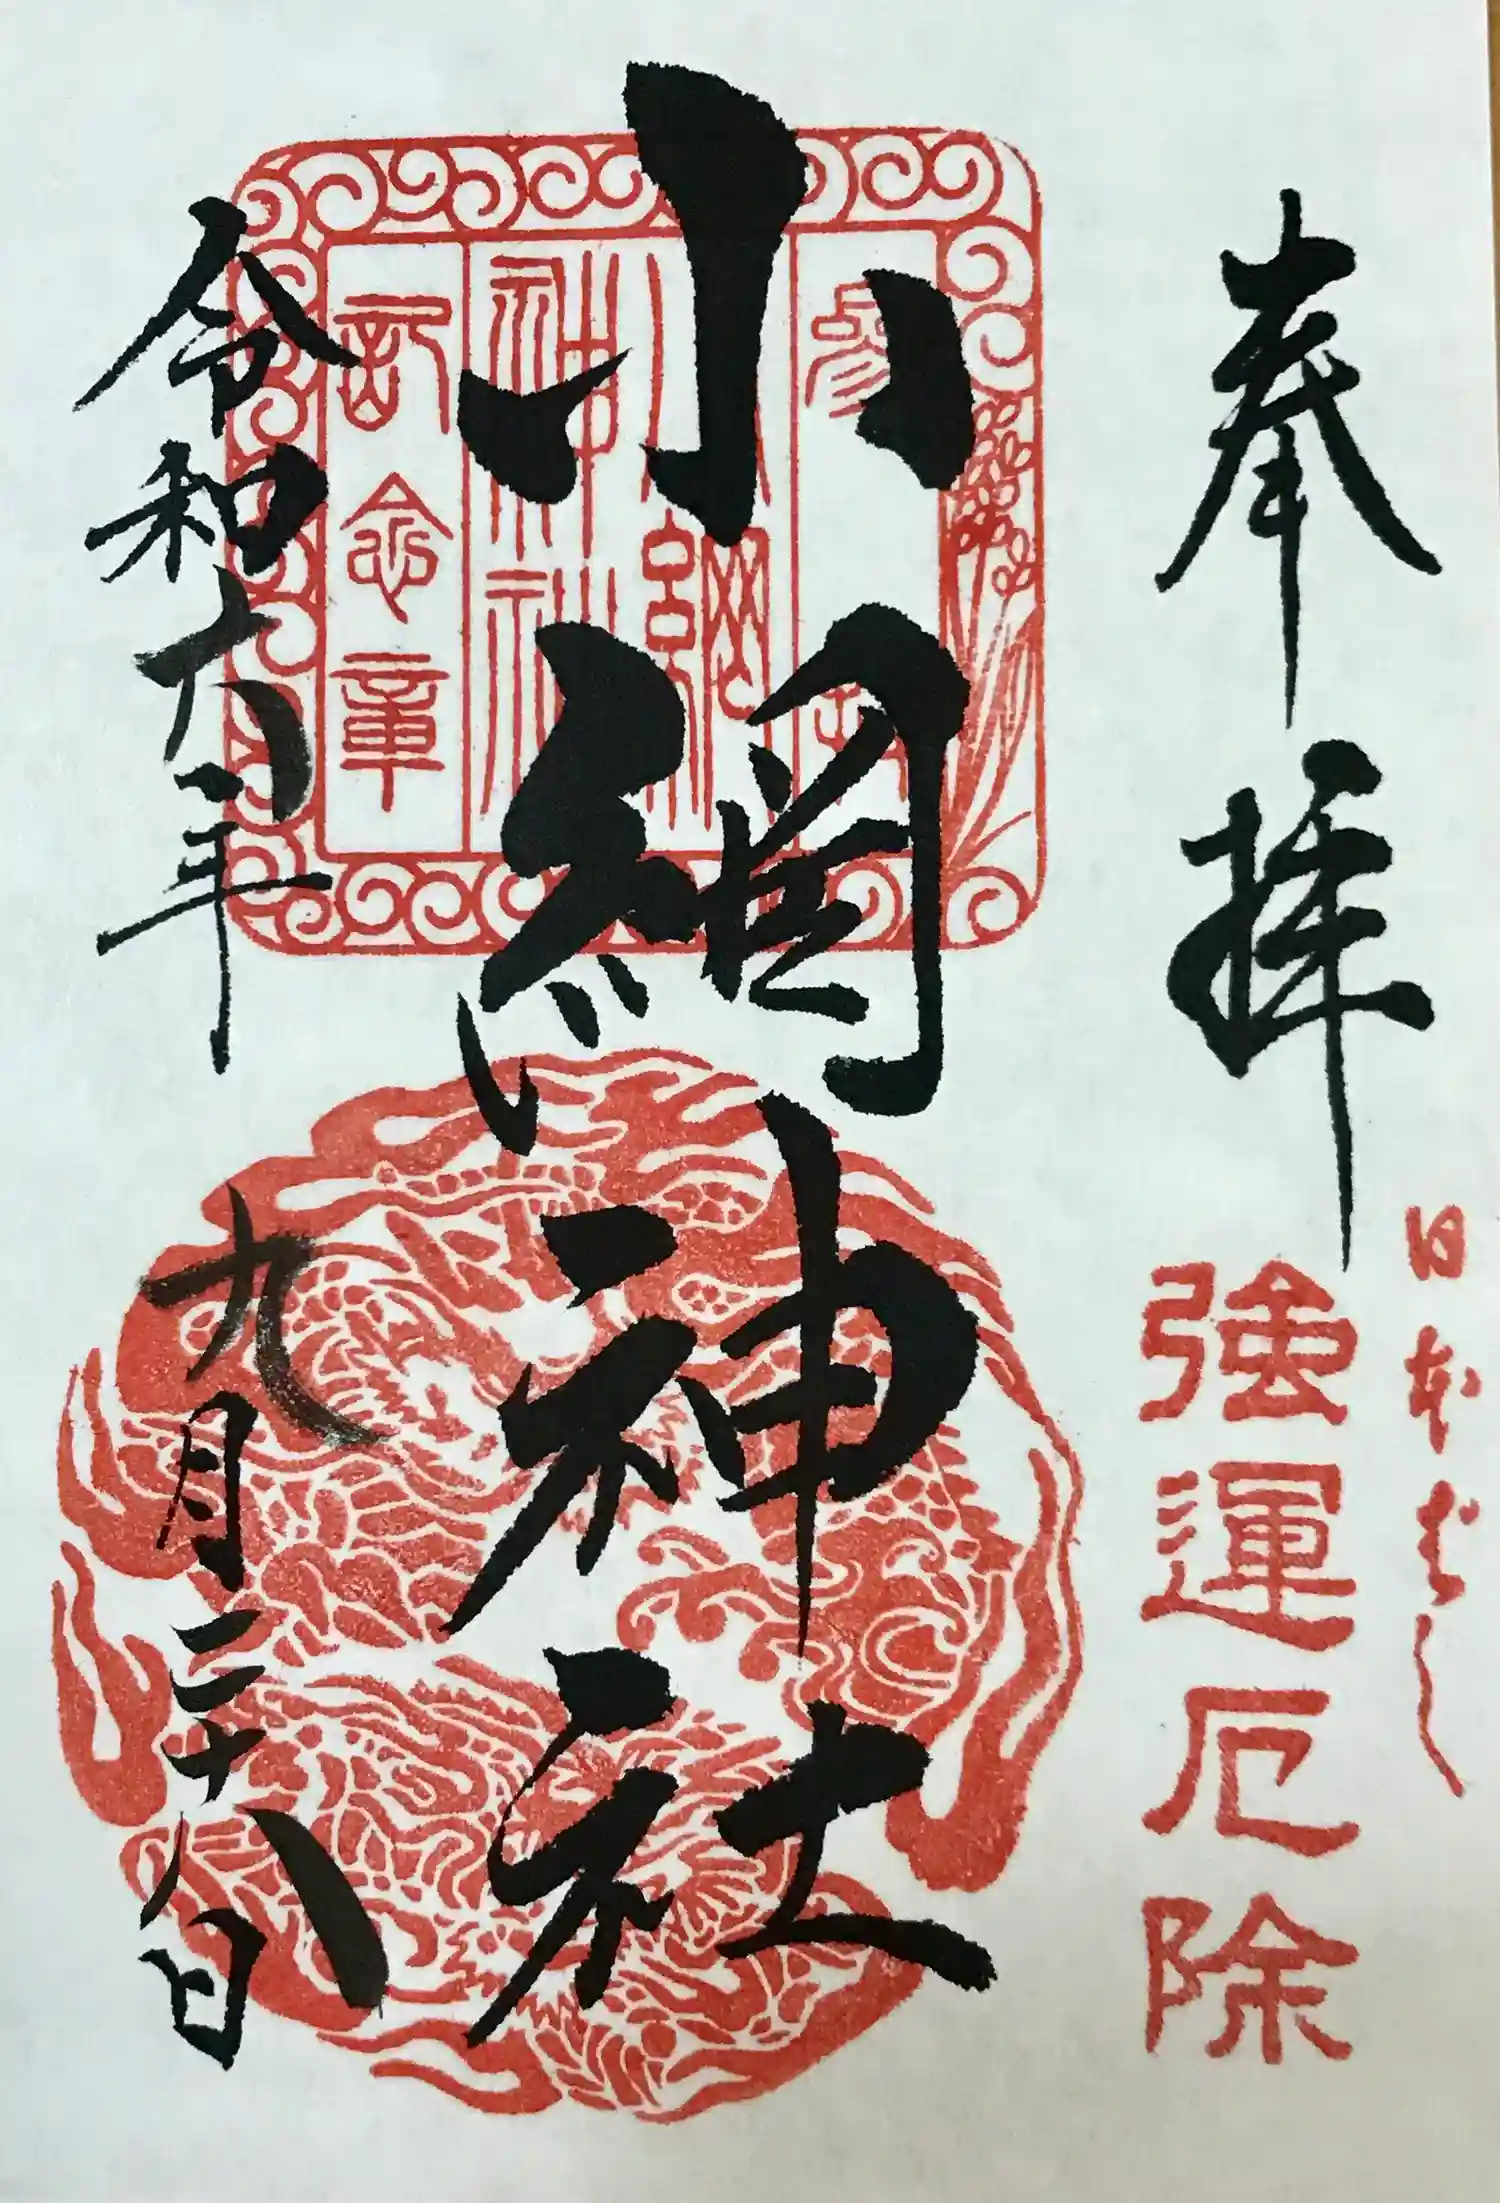 奉拝
日本ばし
強運厄除
小網神社
参拝
小網
神社
記念章
令和六年
九月二十八日